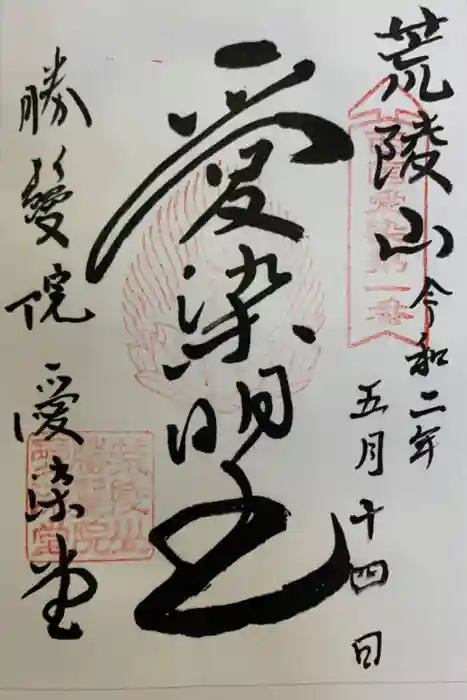 荒陵山
令和二年
五月十四日
愛染明王
勝鬘院
愛染堂
荒陵山
勝鬘院
愛染堂